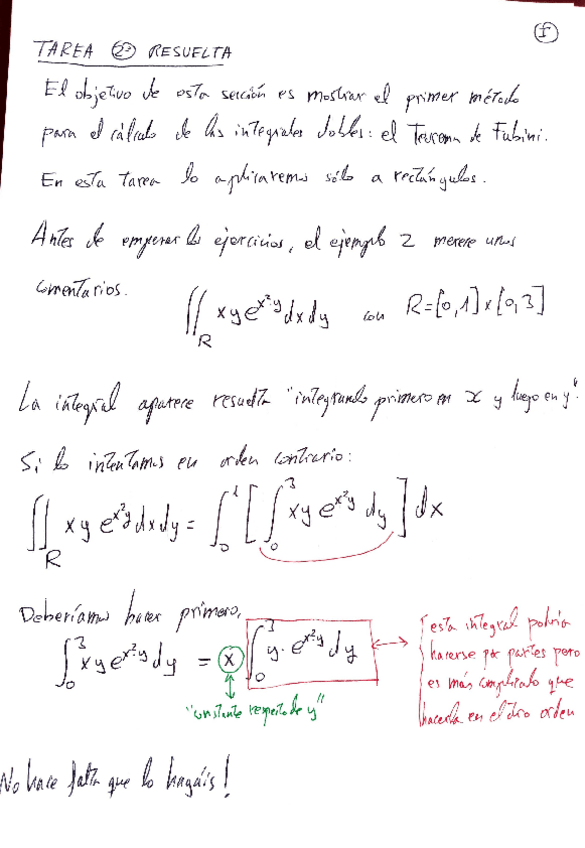 ①
TAREA ②ª RESUELTA
El objetivo de esta sección es mostrar el primer método
para el cálculo de las integrales dobles: el Teorema de Fubini.
En esta tarea lo aplicaremos sólo a rectángulos.
Antes de empezar los ejercicios, el ejemplo 2 merece unos
comentarios.
∬_R xy e^{x²y} dx dy con R=[0,1]×[0,3]
La integral aparece resuelta "integrando primero en x y luego en y".
Si lo intentamos en orden contrario:
∬_R xy e^{x²y} dx dy = ∫_0^1 [ ∫_0^3 xy e^{x²y} dy ] dx
Deberíamos hacer primero,
∫_0^3 xy e^{x²y} dy = x ∫_0^3 y · e^{x²y} dy
"constante respecto de y"
esta integral podría
hacerse por partes pero
es más complicado que
hacerla en el otro orden
No hace falta que lo hagáis!